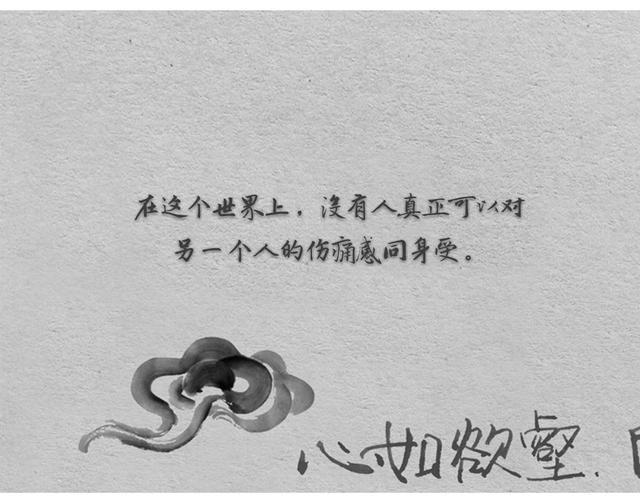 在这个世界上，没有人真正可以对
另一个人的伤痛感同身受。
心如欲壑.